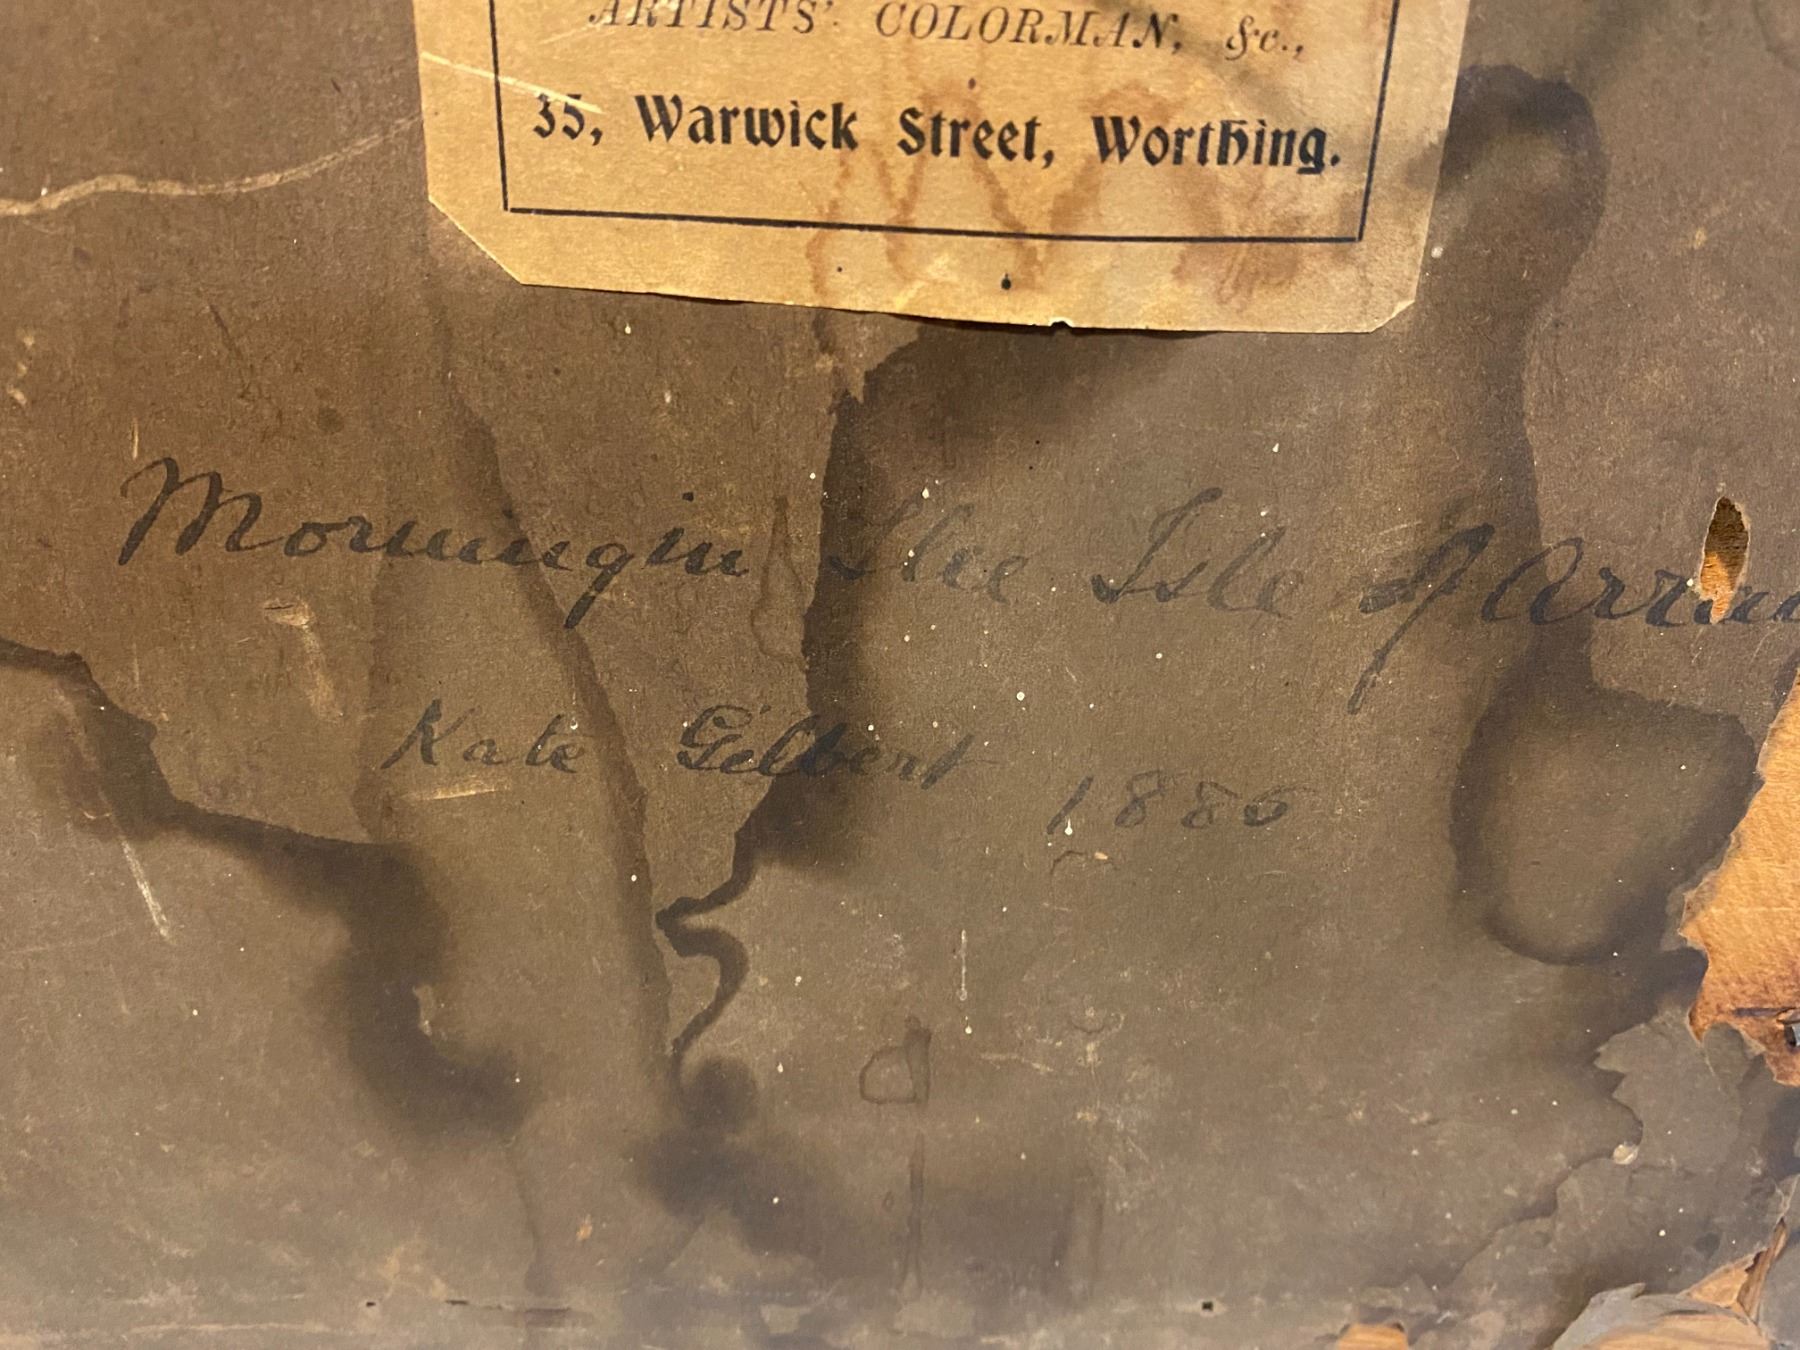 ARTISTS' COLORMAN, &c.,
35, Warwick Street, Worthing.
Morning in The Isle of Arran
Kate Gilbert
1886